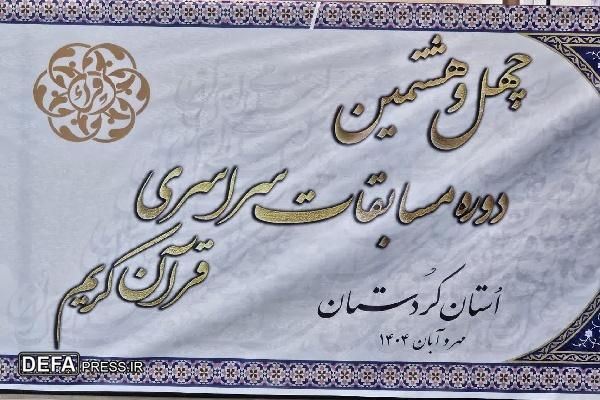 چهل و هشتمین
دوره مسابقات سراسری
قرآن کریم
استان کُردستان
مهر و آبان ۱۴۰۴
DEFA PRESS.IR